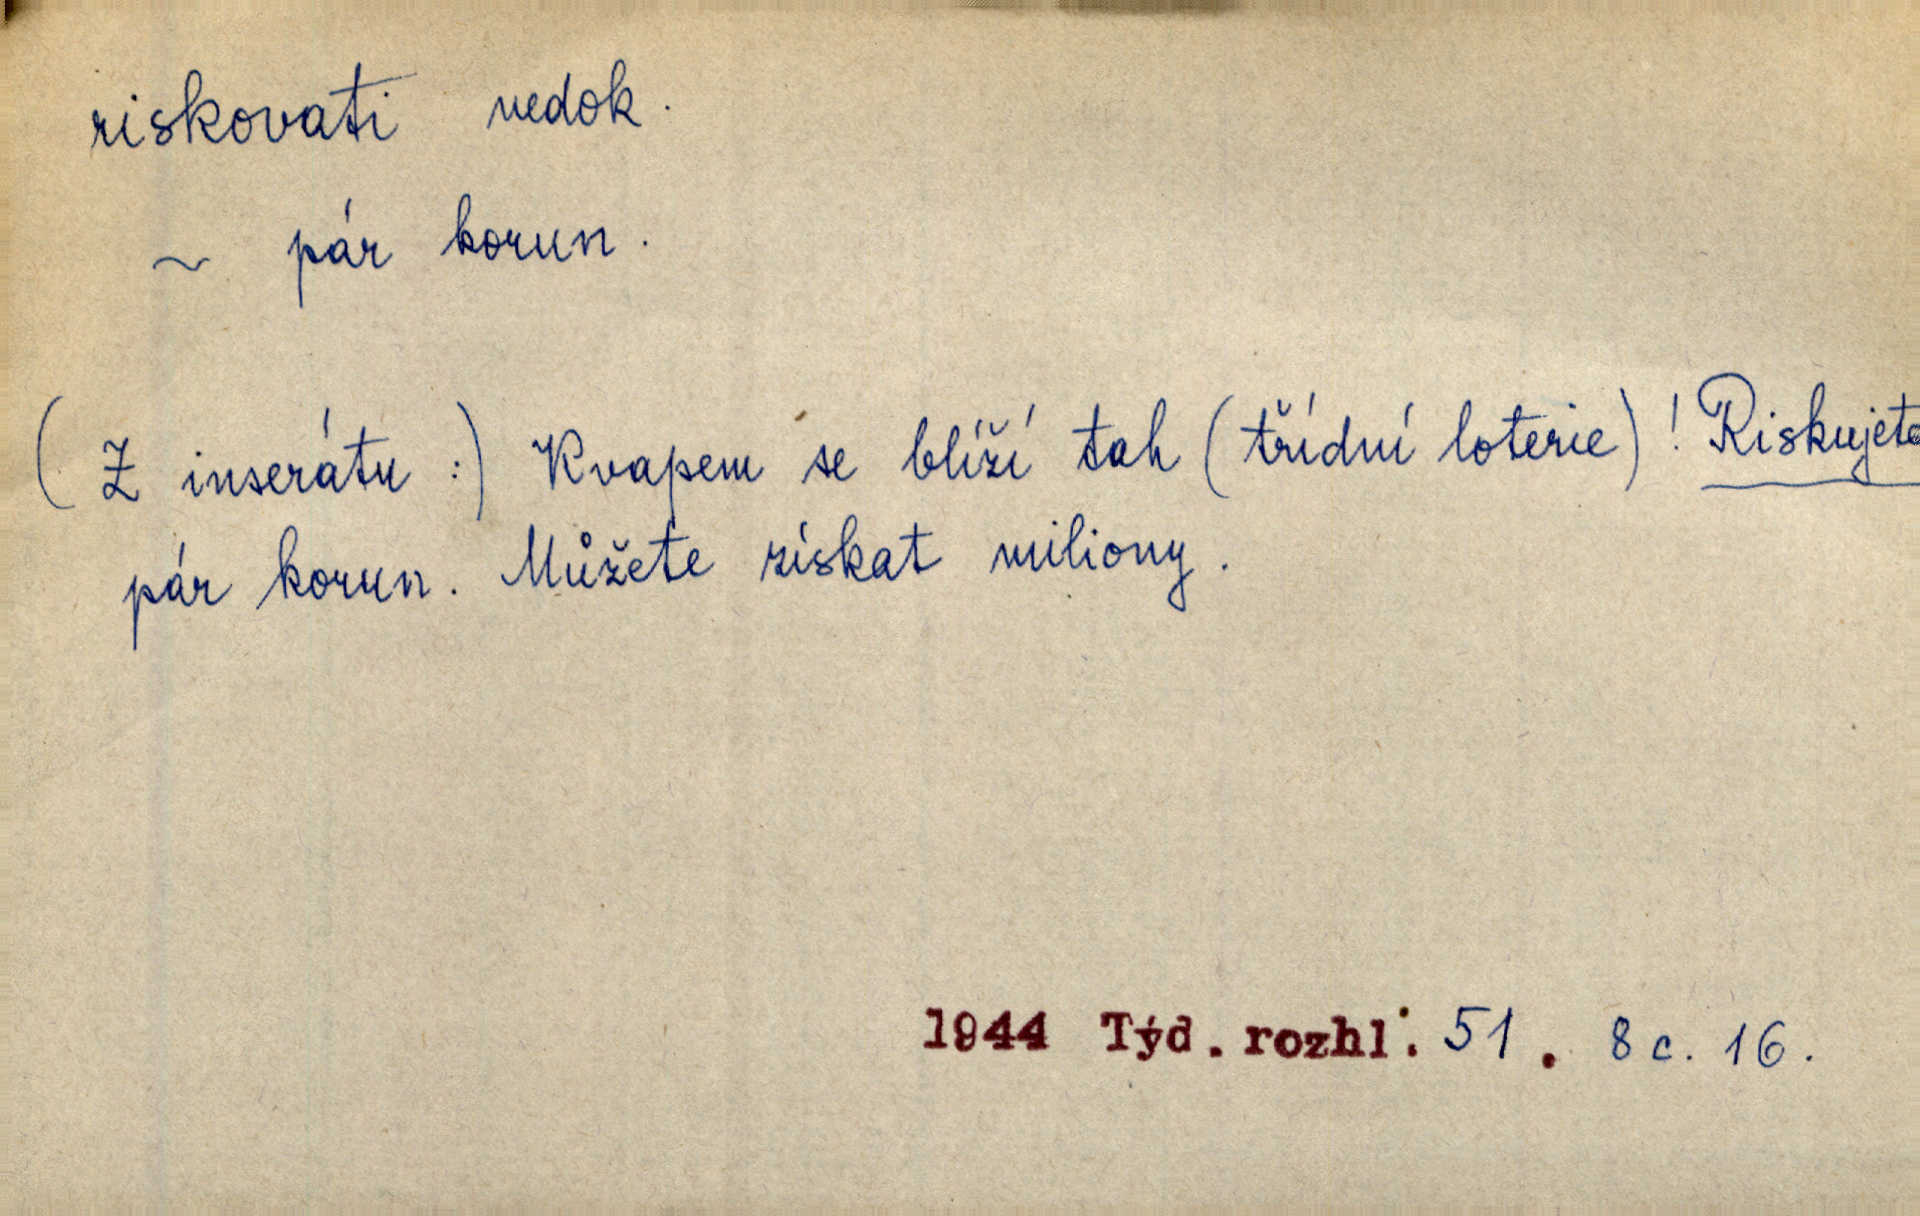 riskovati nedok.
~ pár korun.
(Z inserátu :) Kvapem se blíží tah (třídní loterie)! Riskujete
pár korun. Můžete získat miliony.
1944 Týd. rozhl. 51. 8 c. 16.